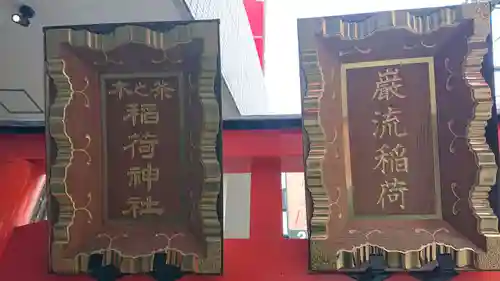 茶之木
稲荷神社
巌流稲荷